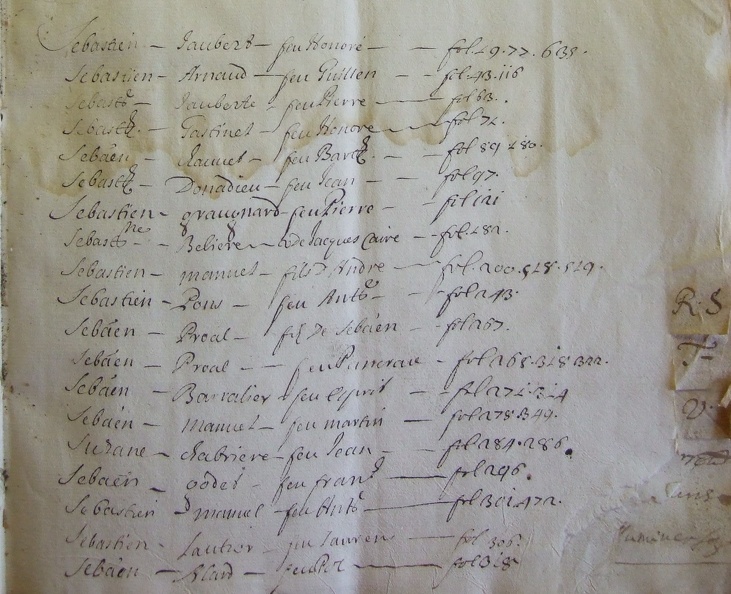 Sebastien — Jaubert — feu Honoré — fol. 49. 77. 635.
Sebastien — Arnaud — feu Guillen — fol. 43. 116
Sebast.e — Jauberte — feu Pierre — fol 63.
Sebast. — Gastinel — feu Honore — fol 74.
Sebãen — chauvet — feu Bart. — fol 89 480.
Sebast. — Donadieu — feu Jean — fol 97.
Sebastien — feu Pierre — fol 121
Sebast.nne — Beliere — de Jacques Caire — fol. 182.
Sebastien — manuel — fils d'Andre — fol. 200. 518. 519.
Sebastien — Pons — feu Ant.e — fol 243.
Sebãen — Proal — fils de Sebãen — fol 267.
Sebãen — Proal — feu — fol 268. 318. 322.
Sebãen — Barralier — feu esprit — fol 274. 314
Sebãen — manuel — feu martin — fol 278. 349.
Suzane — chabriere — feu Jean — fol 284. 286.
Sebaen — oddet — feu fran. — fol 296.
Sebastien — manuel — feu Ant.e — fol 301. 472.
Sebastien — Lautier — feu Laurens — fol 306.
Sebãen — Alard — feu — fol 318
R. S